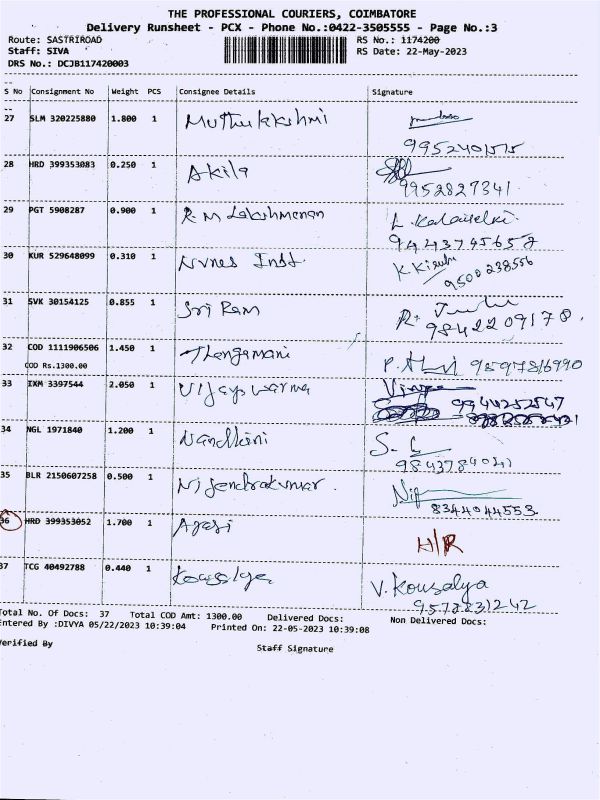 THE PROFESSIONAL COURIERS, COIMBATORE
Delivery Runsheet - PCX - Phone No.:0422-3505555 - Page No.:3
Route: SASTRIROAD RS No.: 1174200
Staff: SIVA RS Date: 22-May-2023
DRS No.: DCJB117420003
S No Consignment No Weight PCS Consignee Details Signature
27 SLM 320225880 1.800 1 Muthulakshmi
9952401515
28 HRD 399353083 0.250 1 Akila
9952827341
29 PGT 5908287 0.900 1 R M Lakshmanan
9443745657
30 KUR 529648099 0.310 1 Nvnes Inst.
9500238556
31 SVK 30154125 0.855 1 Sri Ram
9842209178.
32 COD 1111906506 1.450 1 Thangamani
COD Rs.1300.00
33 IXM 3397544 2.050 1 Vijayavarma
9944252547
34 NGL 1971840 1.200 1 Nandhini
35 BLR 2150607258 0.500 1 Nijendrakumar.
8344044553
36 HRD 399353052 1.700 1 Arasi H/R
37 TCG 40492788 0.440 1 Kousalya V. Kousalya
Total No. Of Docs: 37 Total COD Amt: 1300.00 Delivered Docs: Non Delivered Docs:
Entered By :DIVYA 05/22/2023 10:39:04 Printed On: 22-05-2023 10:39:08
Verified By Staff Signature